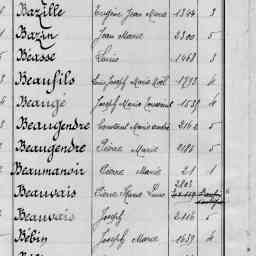 Bazille Eugène Jean Marie 1344 3
Bazin Jean Marie 2300 5
Béasse Louis 1468 3
Beaufils Louis Joseph Marie Noël 1793 4
Beaugé Joseph Marie Toussaint 1539 4
Beaugendre Constant Marie André 2162 5
Beaugendre Pierre Marie 2186 5
Beaumanoir Pierre Marie 21 1
Beauvais Pierre Marie Louis 2803
Beauvais Joseph 2116 5
Bébin Joseph Marie 1639 4